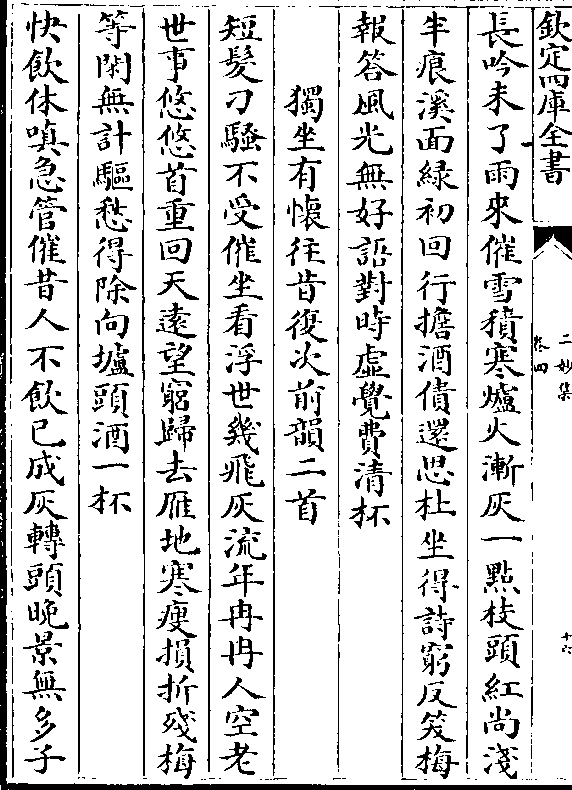 欽定四庫全書
二妙集
卷四
十六
長吟未了雨來催雪積寒爐火漸灰一點枝頭紅尚淺
半痕溪面緑初回行擔酒債還思杜坐得詩窮反笑梅
報答風光無好語對時虚覺費清杯
獨坐有懷往昔復次前韻二首
短髮刁騷不受催坐看浮世幾飛灰流年冉冉人空老
世事悠悠首重回天遠望窮歸去雁地寒瘦損折殘梅
等閑無計驅愁得除向壚頭酒一杯
快飲休嗔急管催昔人不飲已成灰轉頭晚景無多子